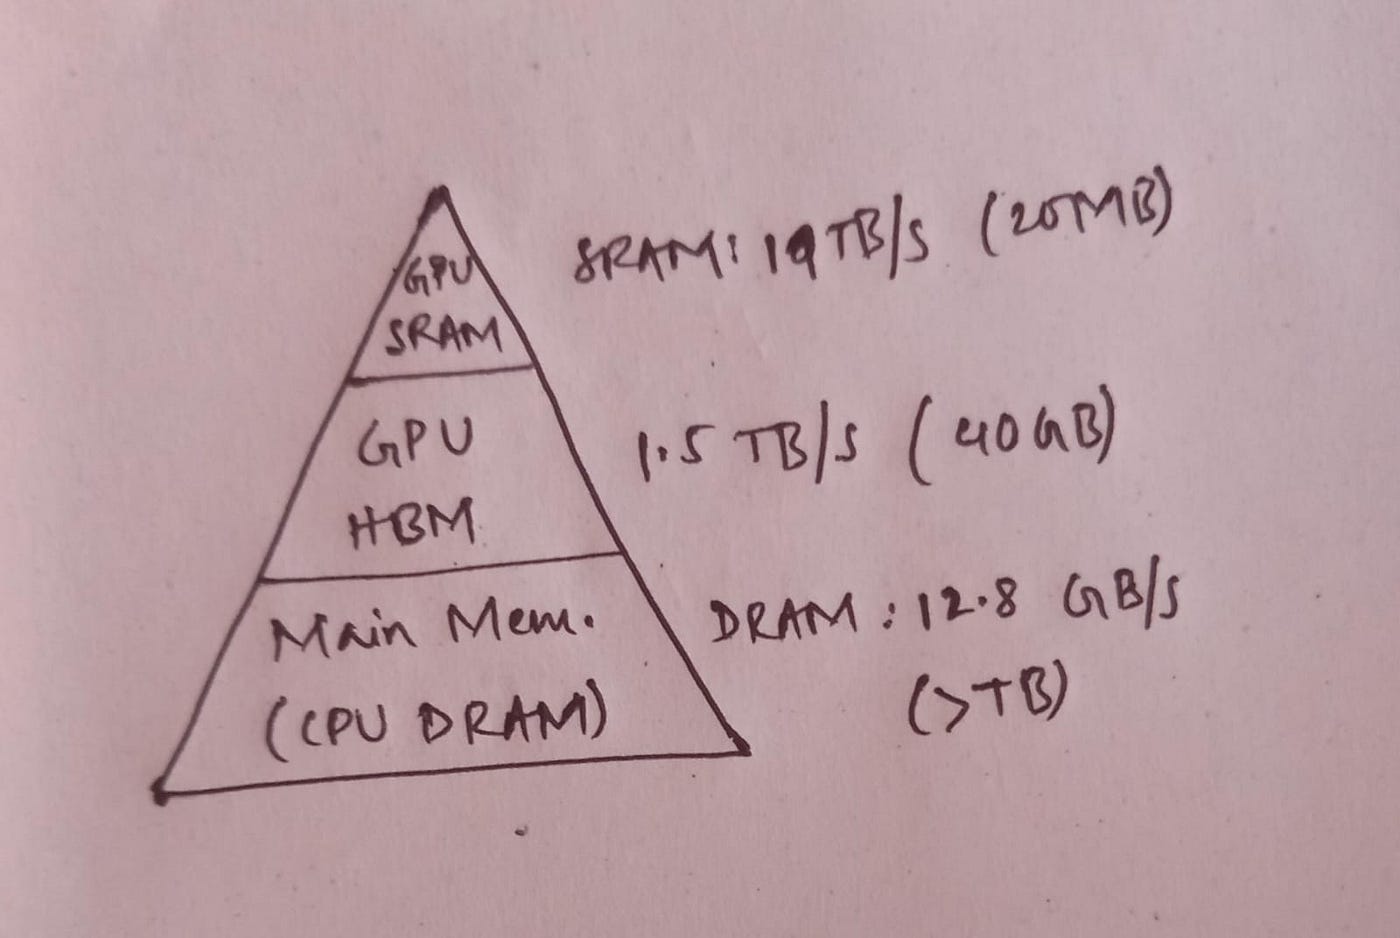 GPU
SRAM
SRAM: 19TB/s (20MB)
GPU
HBM
1.5 TB/s (40GB)
Main Mem.
(CPU DRAM)
DRAM: 12.8 GB/s
(>TB)